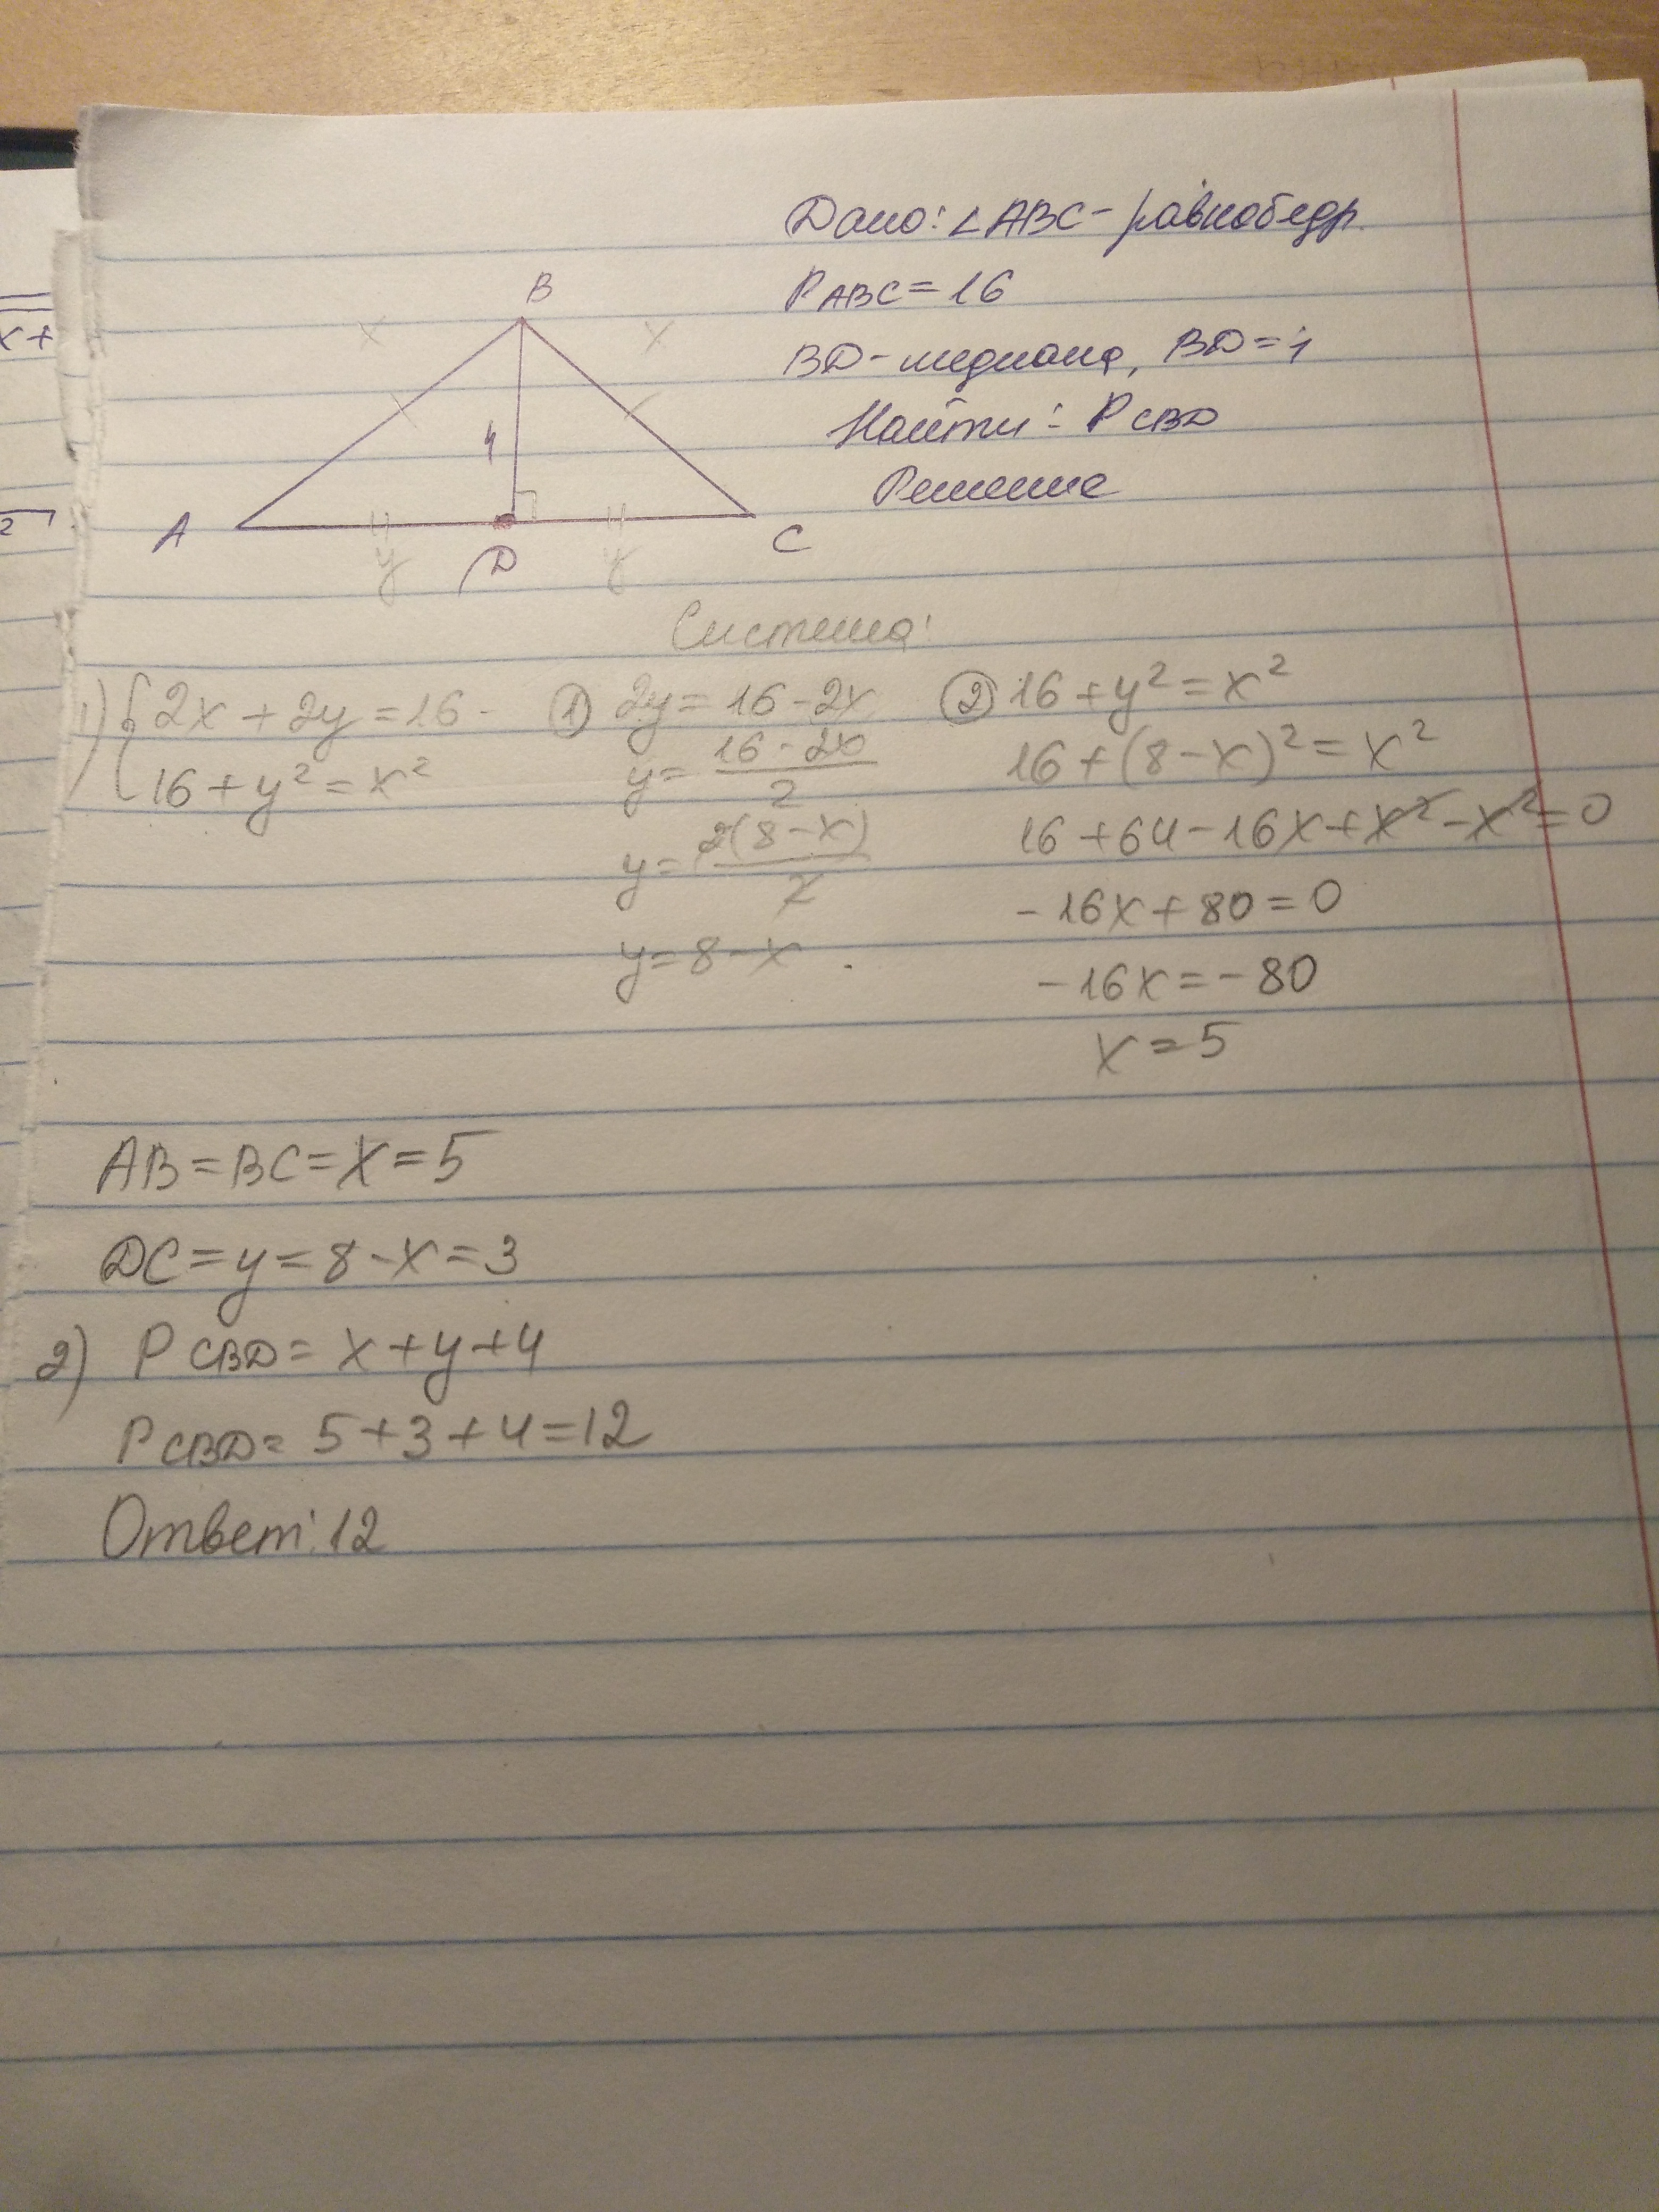 Дано: ∠ABC - равнобедр.
P ABC = 16
BD - медиана, BD = 4
Найти: P CBD
Решение
B
x x
4
A D C
y y
Система:
1) { 2x + 2y = 16
16 + y² = x²
① 2y = 16 - 2x
y = (16 - 2x)/2
y = 2(8 - x)/2
y = 8 - x
② 16 + y² = x²
16 + (8 - x)² = x²
16 + 64 - 16x + x² - x² = 0
- 16x + 80 = 0
- 16x = - 80
x = 5
AB = BC = x = 5
DC = y = 8 - x = 3
2) P CBD = x + y + 4
P CBD = 5 + 3 + 4 = 12
Ответ: 12
x +
2